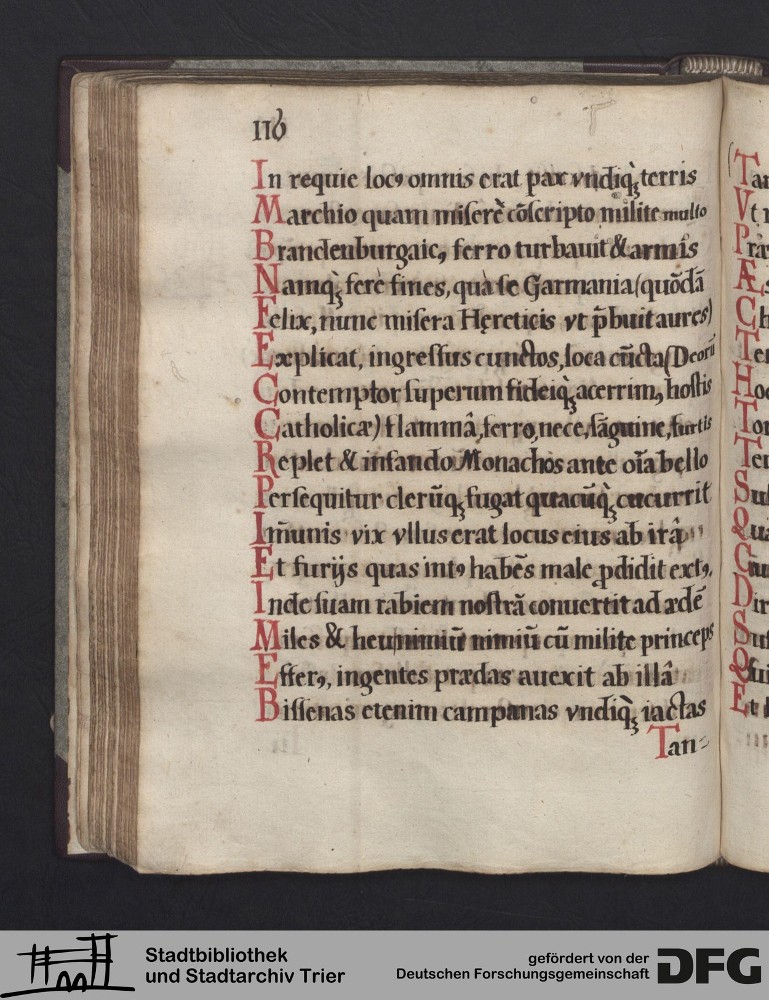 116
In requie locꝰ omnis erat pax vndiq̀ꝫ terris
Marchio quam miserè cōscripto milite multo
Brandenburgaicꝰ ferro turbauit & armis
Namq̀ꝫ ferè fines, quà se Garmania (quōdā
Felix, nunc misera Hęreticis vt p̄buit aures)
Explicat, ingressus cunctos, loca cūcta (Deorū
Contemptor superum fideiq̀ꝫ acerrimꝰ hostis
Catholicæ) flammâ, ferro, nece, sāguine, furtis
Replet & infando Monachos ante oīa bello
Persequitur clerūqꝫ fugat quacūq̀ꝫ cucurrit
Im̄unis vix vllus erat locus eius ab irâ
Et furijs quas intꝰ habēs male ꝓdidit extꝰ.
Inde suam rabiem nostrā conuertit ad ædē
Miles & heu nimiū nimiū cū milite princeps
Efferꝰ, ingentes prædas auexit ab illâ
Bissenas etenim campanas vndiq̀ꝫ iactas
Tan=
Ta
Vt
Præ
Æs
Ch
Te
Ho
To
Te
Su
Qua
Cū
Di
Su
Qui
Et
Stadtbibliothek
und Stadtarchiv Trier
gefördert von der
Deutschen Forschungsgemeinschaft
DFG